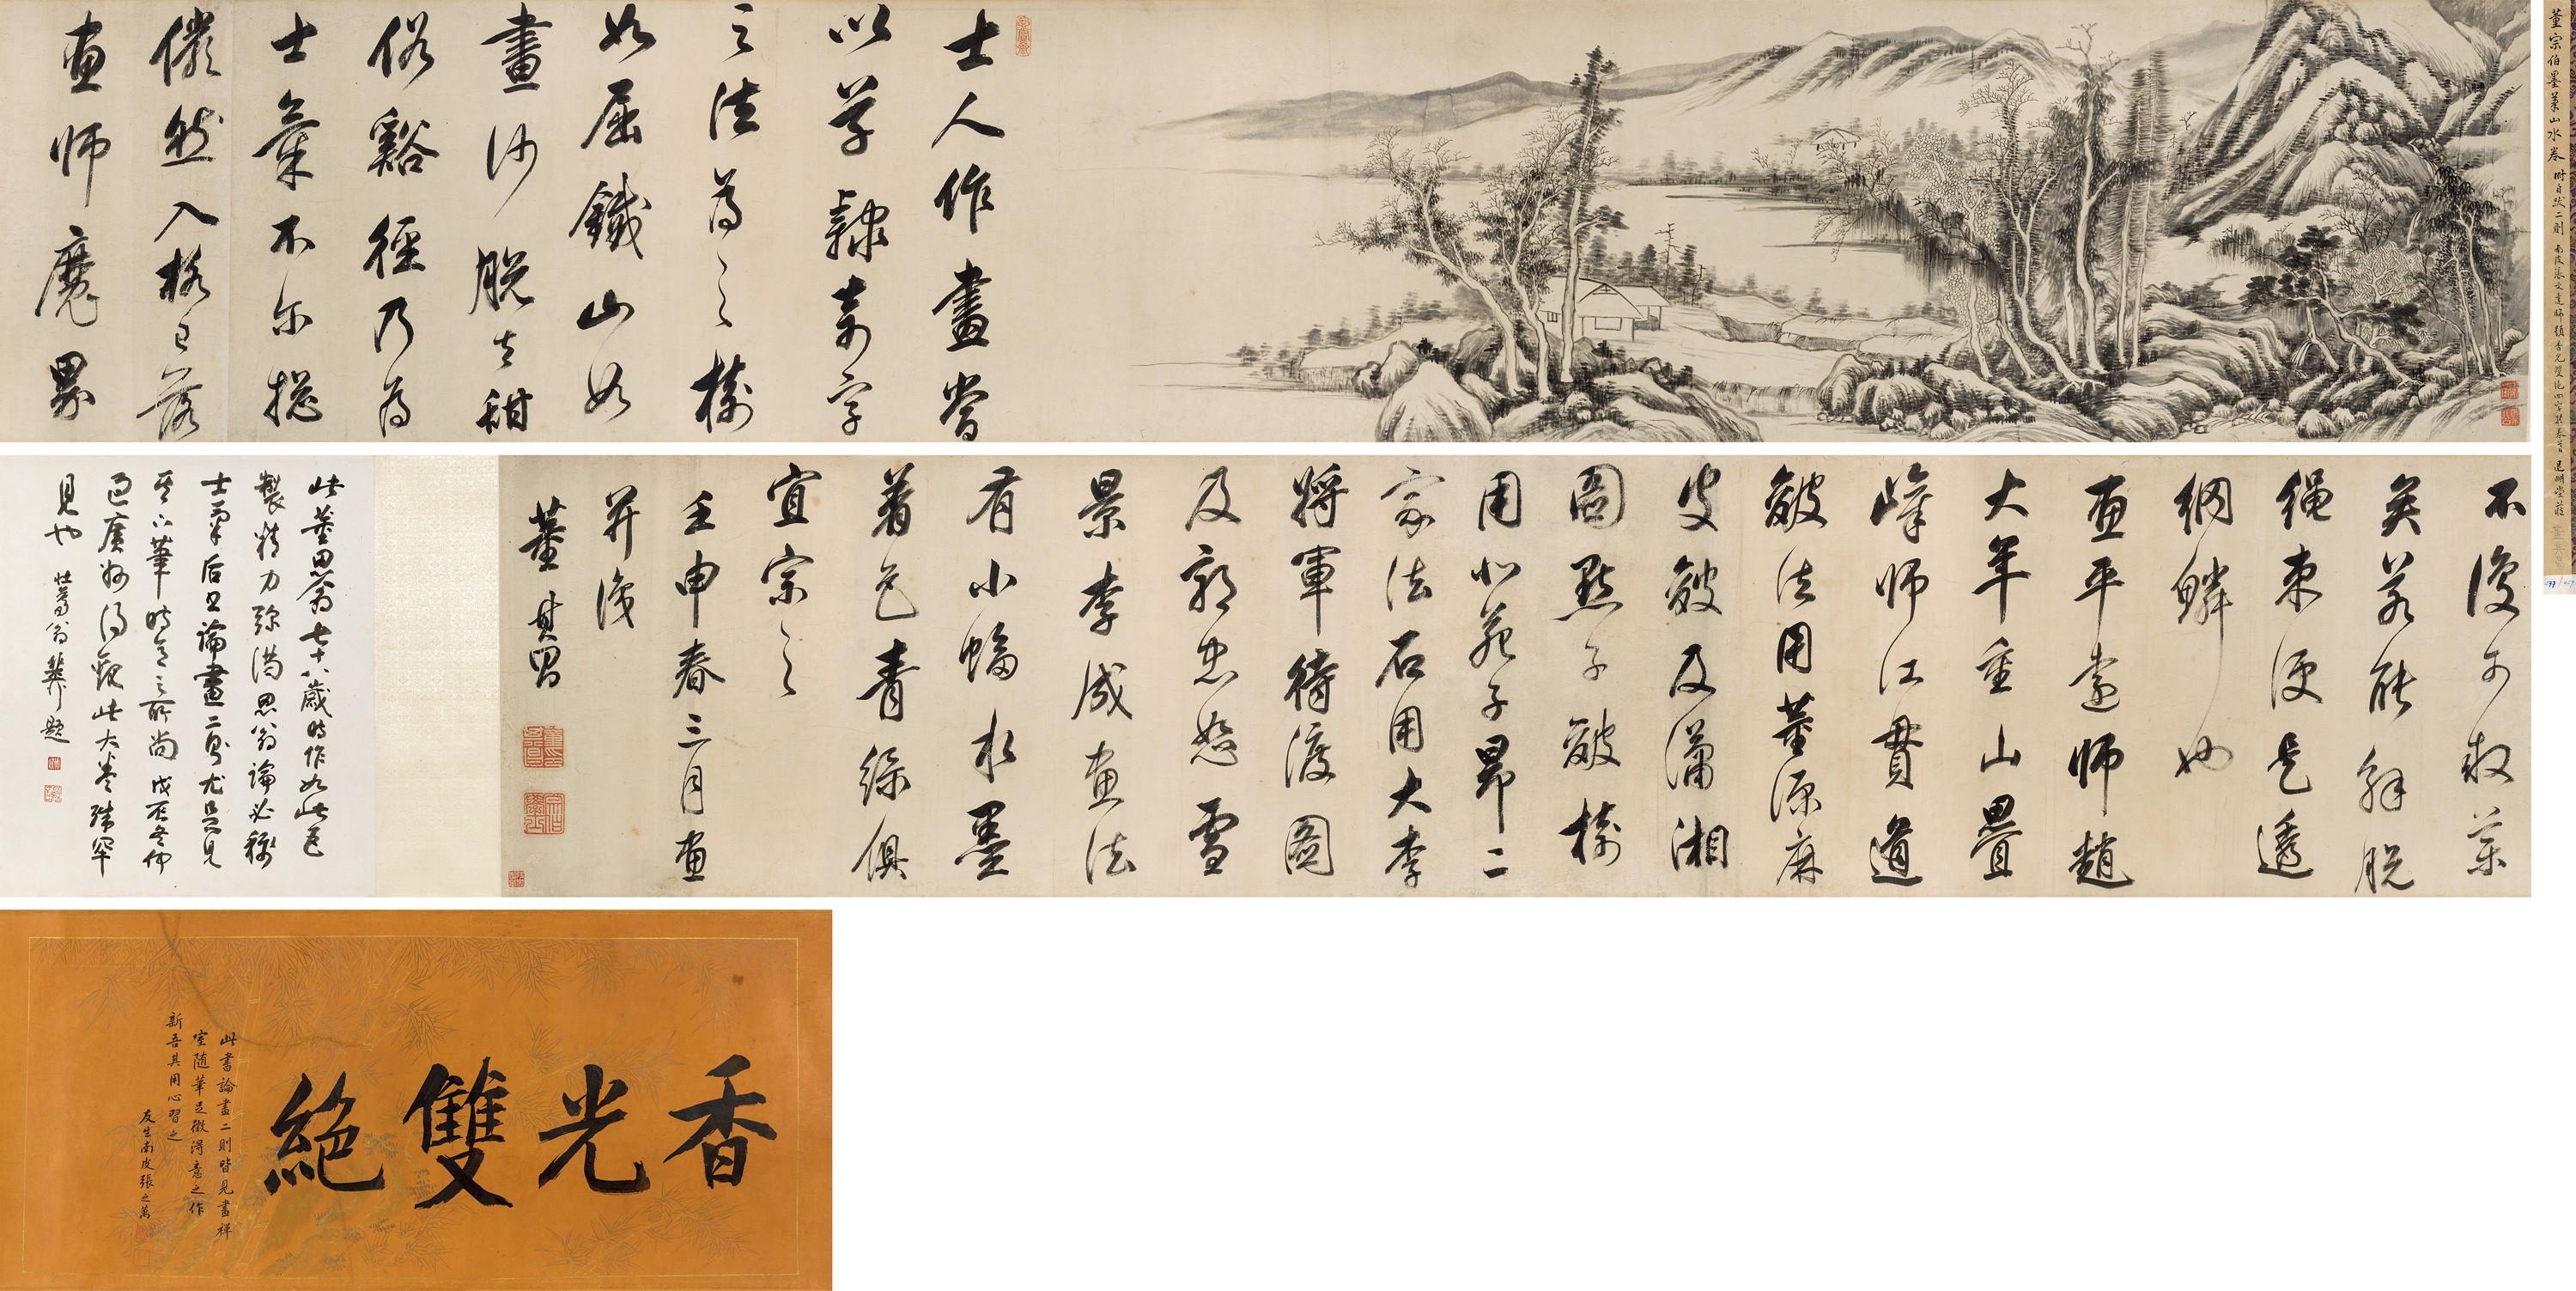 董宗伯墨筆山水卷 附自跋二則
士人作畫當
以草隸奇字
之法為之樹
如屈鐵山如
畫沙脫去甜
俗谿徑乃為
士氣不尔縱
儼然入格已落
画師魔界
不復可救藥
矣若能解脫
繩束便是透
網鱗也
画平遠師趙
大年重山疊
嶂師江貫道
皴法用董源麻
皮皴及瀟湘
圖點子皴樹
用北苑子昂二
家法石用大李
將軍待渡圖
及郭忠恕雪
景李成画法
有小幅水墨
着色青綠俱
宜宗之
壬申春三月画
并識
董其昌
此董思翁七十八歲時作如此巨
製精力弥滿思翁論必稱
士氣后又論畫二則尤足見
其下筆時意之所尚戊辰冬仲
過廣州得觀此大卷殊罕
見也
壯暮翁稚題
香光雙絕
此書論畫二則皆見畫禪
室隨筆足徵得意之作
新吾其用心習之
友生南皮張之萬